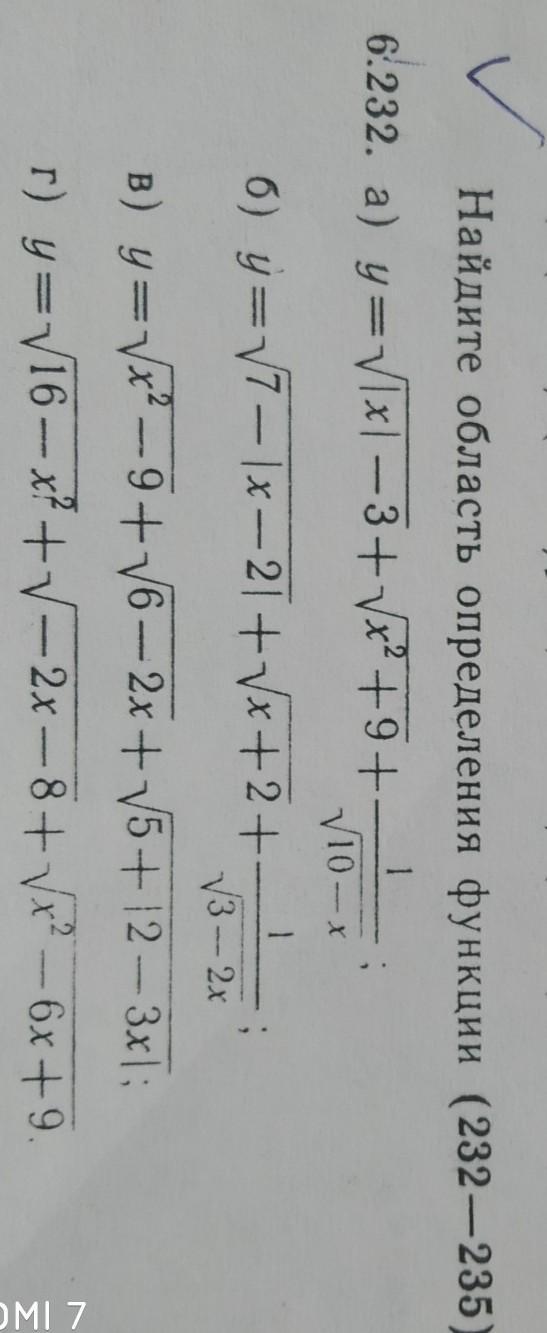 Найдите область определения функции (232—235)
6.232. а) y=√(|x|−3)+√(x²+9)+1/√(10−x);
б) y=√(7−|x−2|)+√(x+2)+1/√(3−2x);
в) y=√(x²−9)+√(6−2x)+√(5+|2−3x|);
г) y=√(16−x²)+√(−2x−8)+√(x²−6x+9).
OMI 7